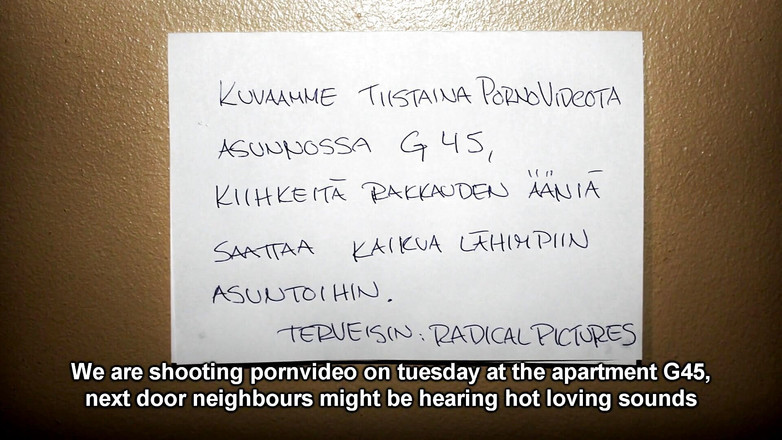 KUVAAMME TIISTAINA PORNOVIDEOTA
ASUNNOSSA G 45,
KIIHKEITÄ RAKKAUDEN ÄÄNIÄ
SAATTAA KAIKUA LÄHIMPIIN
ASUNTOIHIN.
TERVEISIN: RADICAL PICTURES
We are shooting pornvideo on tuesday at the apartment G45,
next door neighbours might be hearing hot loving sounds